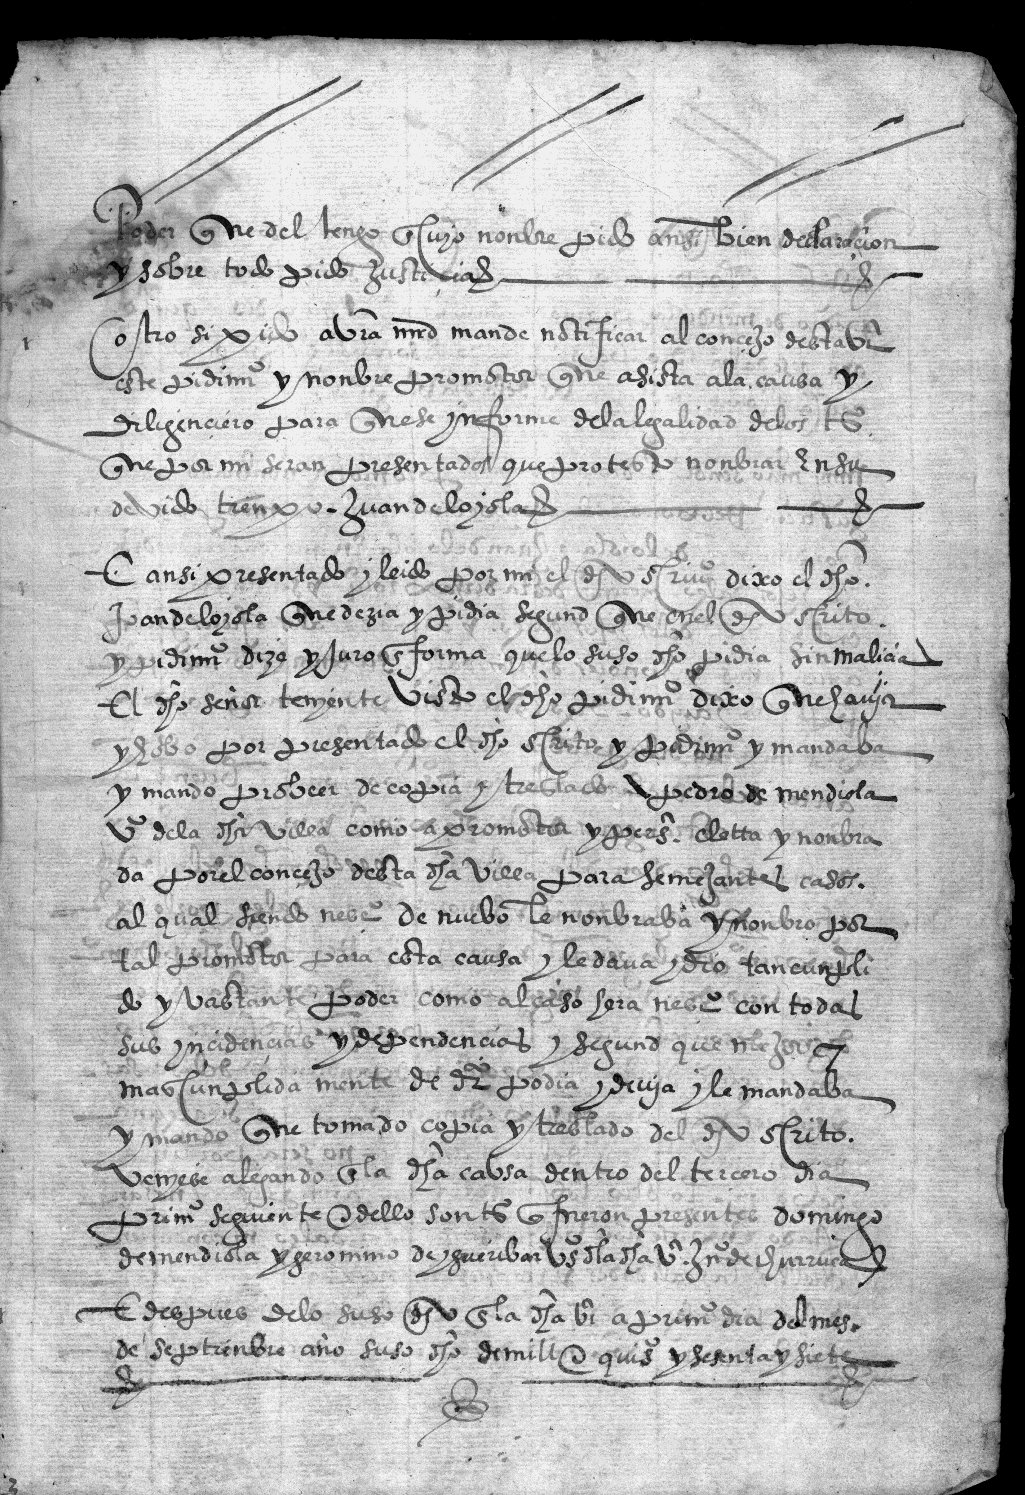 Poder que del tengo en cuyo nonbre pido ansi bien declaracion
y sobre todo pido Justicia
otro si pido a vra md mande notificar al concejo desta vi
este pidimiº y nonbre promotor que asista a la causa y
diligenciero para que se ynforme de la legalidad de los tsº
que por mi seran presentados que protesto nonbrar en su
devido tienpo. Juan de loyola
E ansi presentado y leido por mi el dho scriuº dixo el dho
Joan de loyola que dezia y pidia segund que en el dho scrito.
y pidimiº dize y Juro en forma que lo suso dho pidia sin malicia
El dho señor teniente visto el dho pidimiº dixo que havia
y hobo por presentado el dho scrito y pidimiº y mandaba
y mando probeer de copia y treslado a pedro de mendiola
vº de la dha villa como a promotor y persª. eletta y nonbra
da por el concejo desta dha villa para semejantes casos.
al qual siendo nesº de nuebo le nonbraba y nonbro por
tal promotor para esta causa y le dava y dio tan cunpli
do y vastante poder como al caso sera nesº con todas
sus yncidencias y dependencias y segund que
mas cunplida mente de drº podia y devia y le mandaba
y mando que tomado copia y treslado del dho scrito.
veniese alegando en la dha causa dentro del tercero dia
primº seguiente e dello son tsº que fueron presentes domingo
de mendiola y geronimo de ygueribar vsº de la dha vª. Juº de churruca
E despues de lo suso dho en la dha vª a primº dia del mes.
de septienbre año suso dho de mill e quisº y sesenta y siete